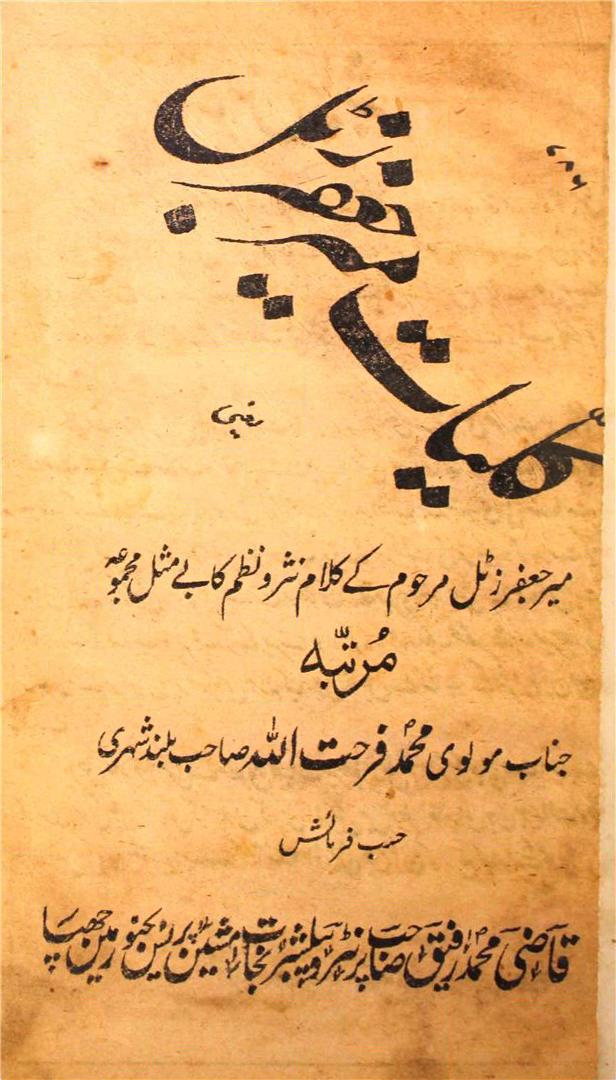 ۷۸۶
کلیات میر جعفر زٹلی
میر جعفر زٹل مرحوم کے کلام نثر و نظم کا بے مثل مجموعہ
مُرتبّہ
جناب مولوی محمد فرحت اللہ صاحب بلند شہری
حسب فرمائش
قاضی محمد رفیق صاحب پرنٹر و پبلیشر نجات مشین پریس بجنور میں چھپا